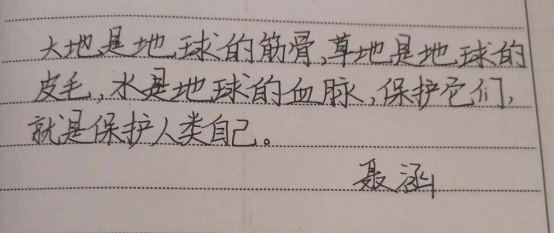 大地是地球的筋骨,草地是地球的
皮毛,水是地球的血脉,保护它们,
就是保护人类自己。
聂涵